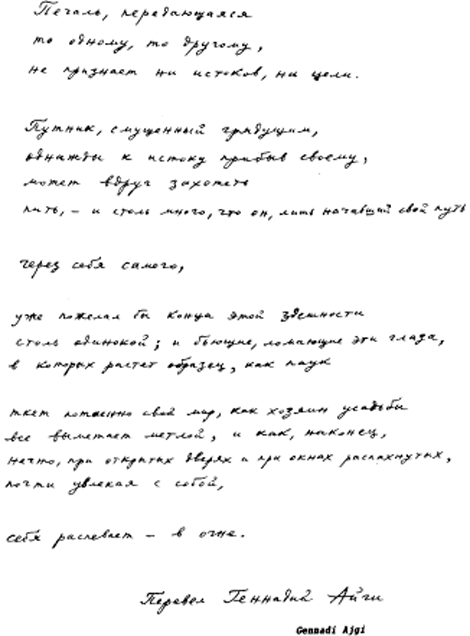 Печаль, передающаяся
то одному, то другому,
не признает ни истоков, ни цели.
Путник, смущенный грядущим,
однажды к истоку прибыв своему,
может вдруг захотеть
пить, – и столь много, что он, лишь начавший свой путь
через себя самого,
уже пожелал бы конца этой здешности
столь одинокой; и бьющие, ломающие эти глаза,
в которых растет образец, как паук
ткет потаенно свой мир, как хозяин усадьбы
все выметает метлой, и как, наконец,
нечто, при открытых дверях и при окнах распахнутых,
почти увлекая с собой,
себя распевает – в огне.
Перевел Геннадий Айги
Gennadi Ajgi